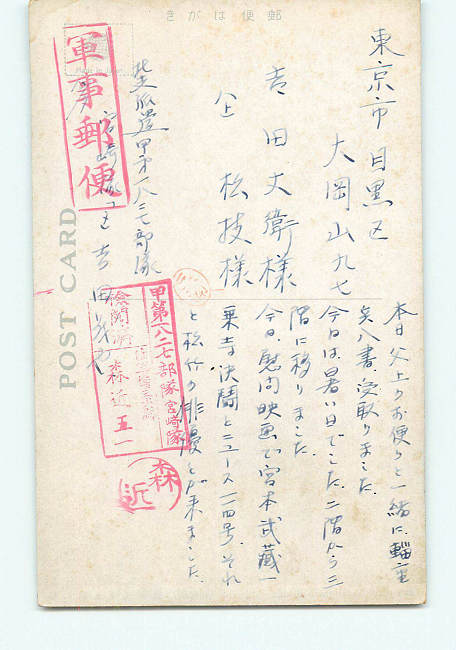 きがは便郵
東京市目黒区
大岡山九七
吉田丈衛様
仝 松枝様
軍事郵便
甲第一八二七部隊
宮崎隊
吉田
甲第一八二七部隊宮崎隊
検閲済
森近五一
森近
POST CARD
本日父上のお便りと一緒に
書受取りました。
今日は暑い日でした。二階から三
階に移りました。
今日、慰問映画で宮本武蔵一
乗寺決闘とニュース一四号、それ
と松竹の俳優とが来ました。